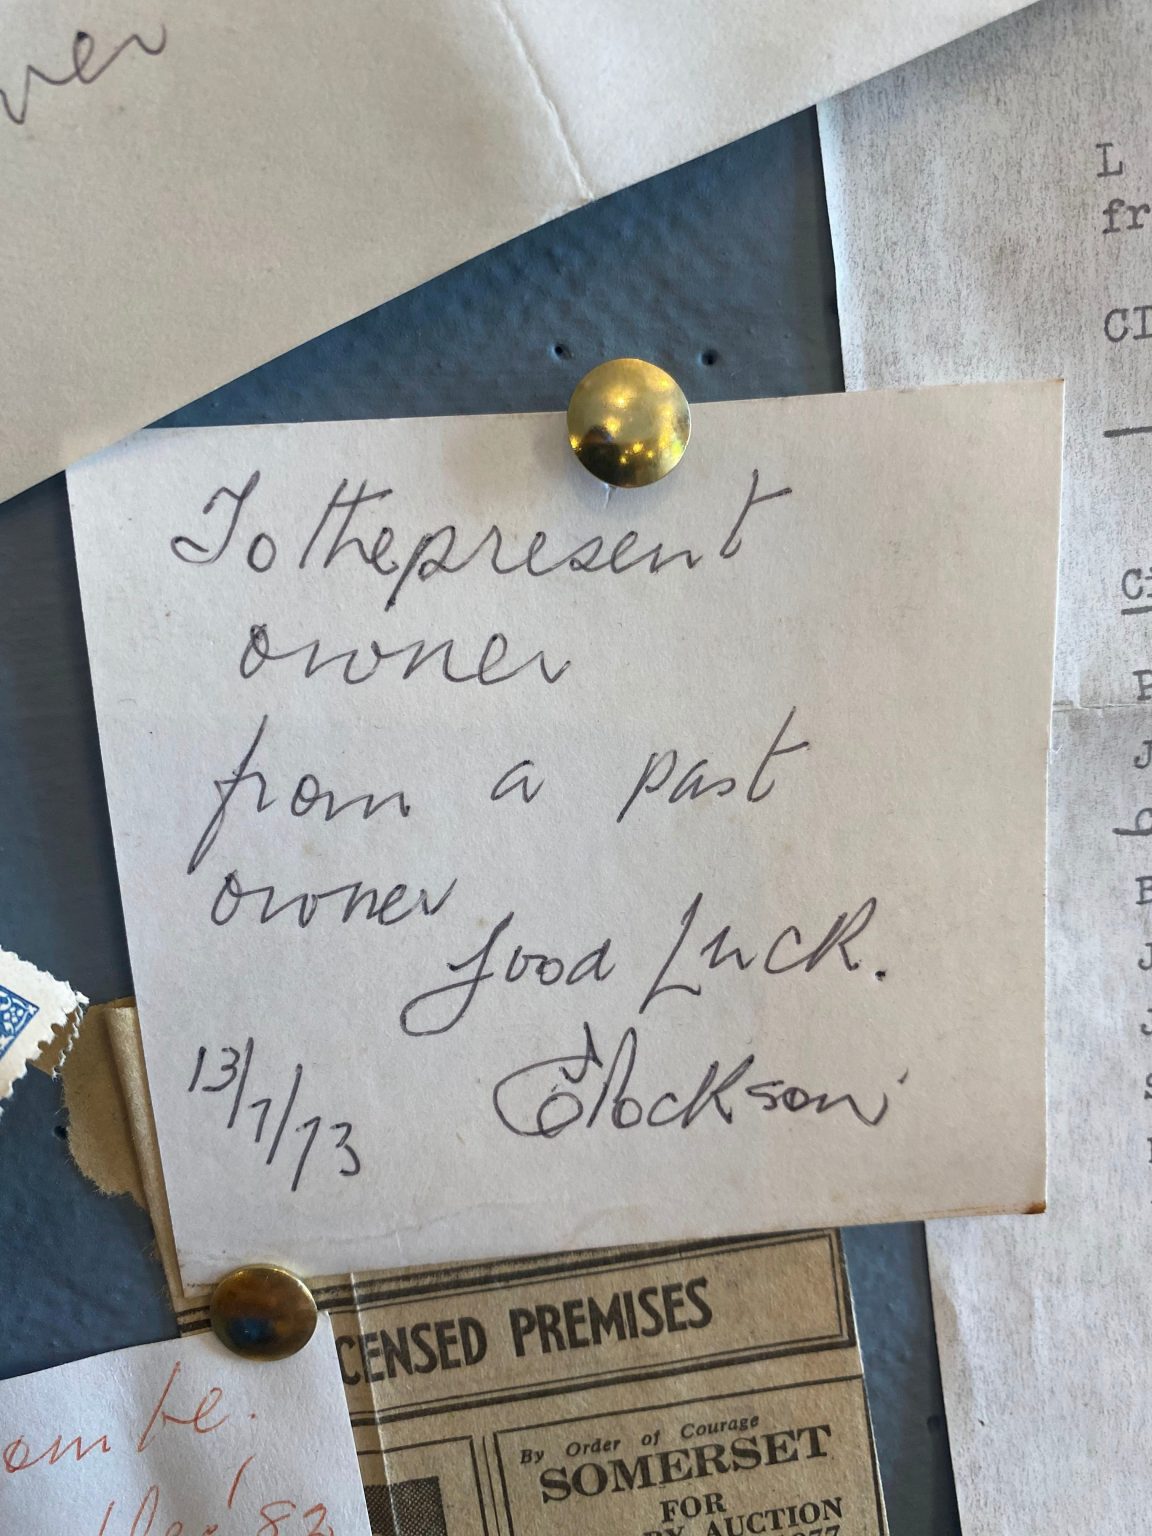 ner
L
fr
To the present
owner
from a past
owner
Good Luck.
13/7/73
CENSED PREMISES
By Order of Courage
SOMERSET
FOR
BY AUCTION